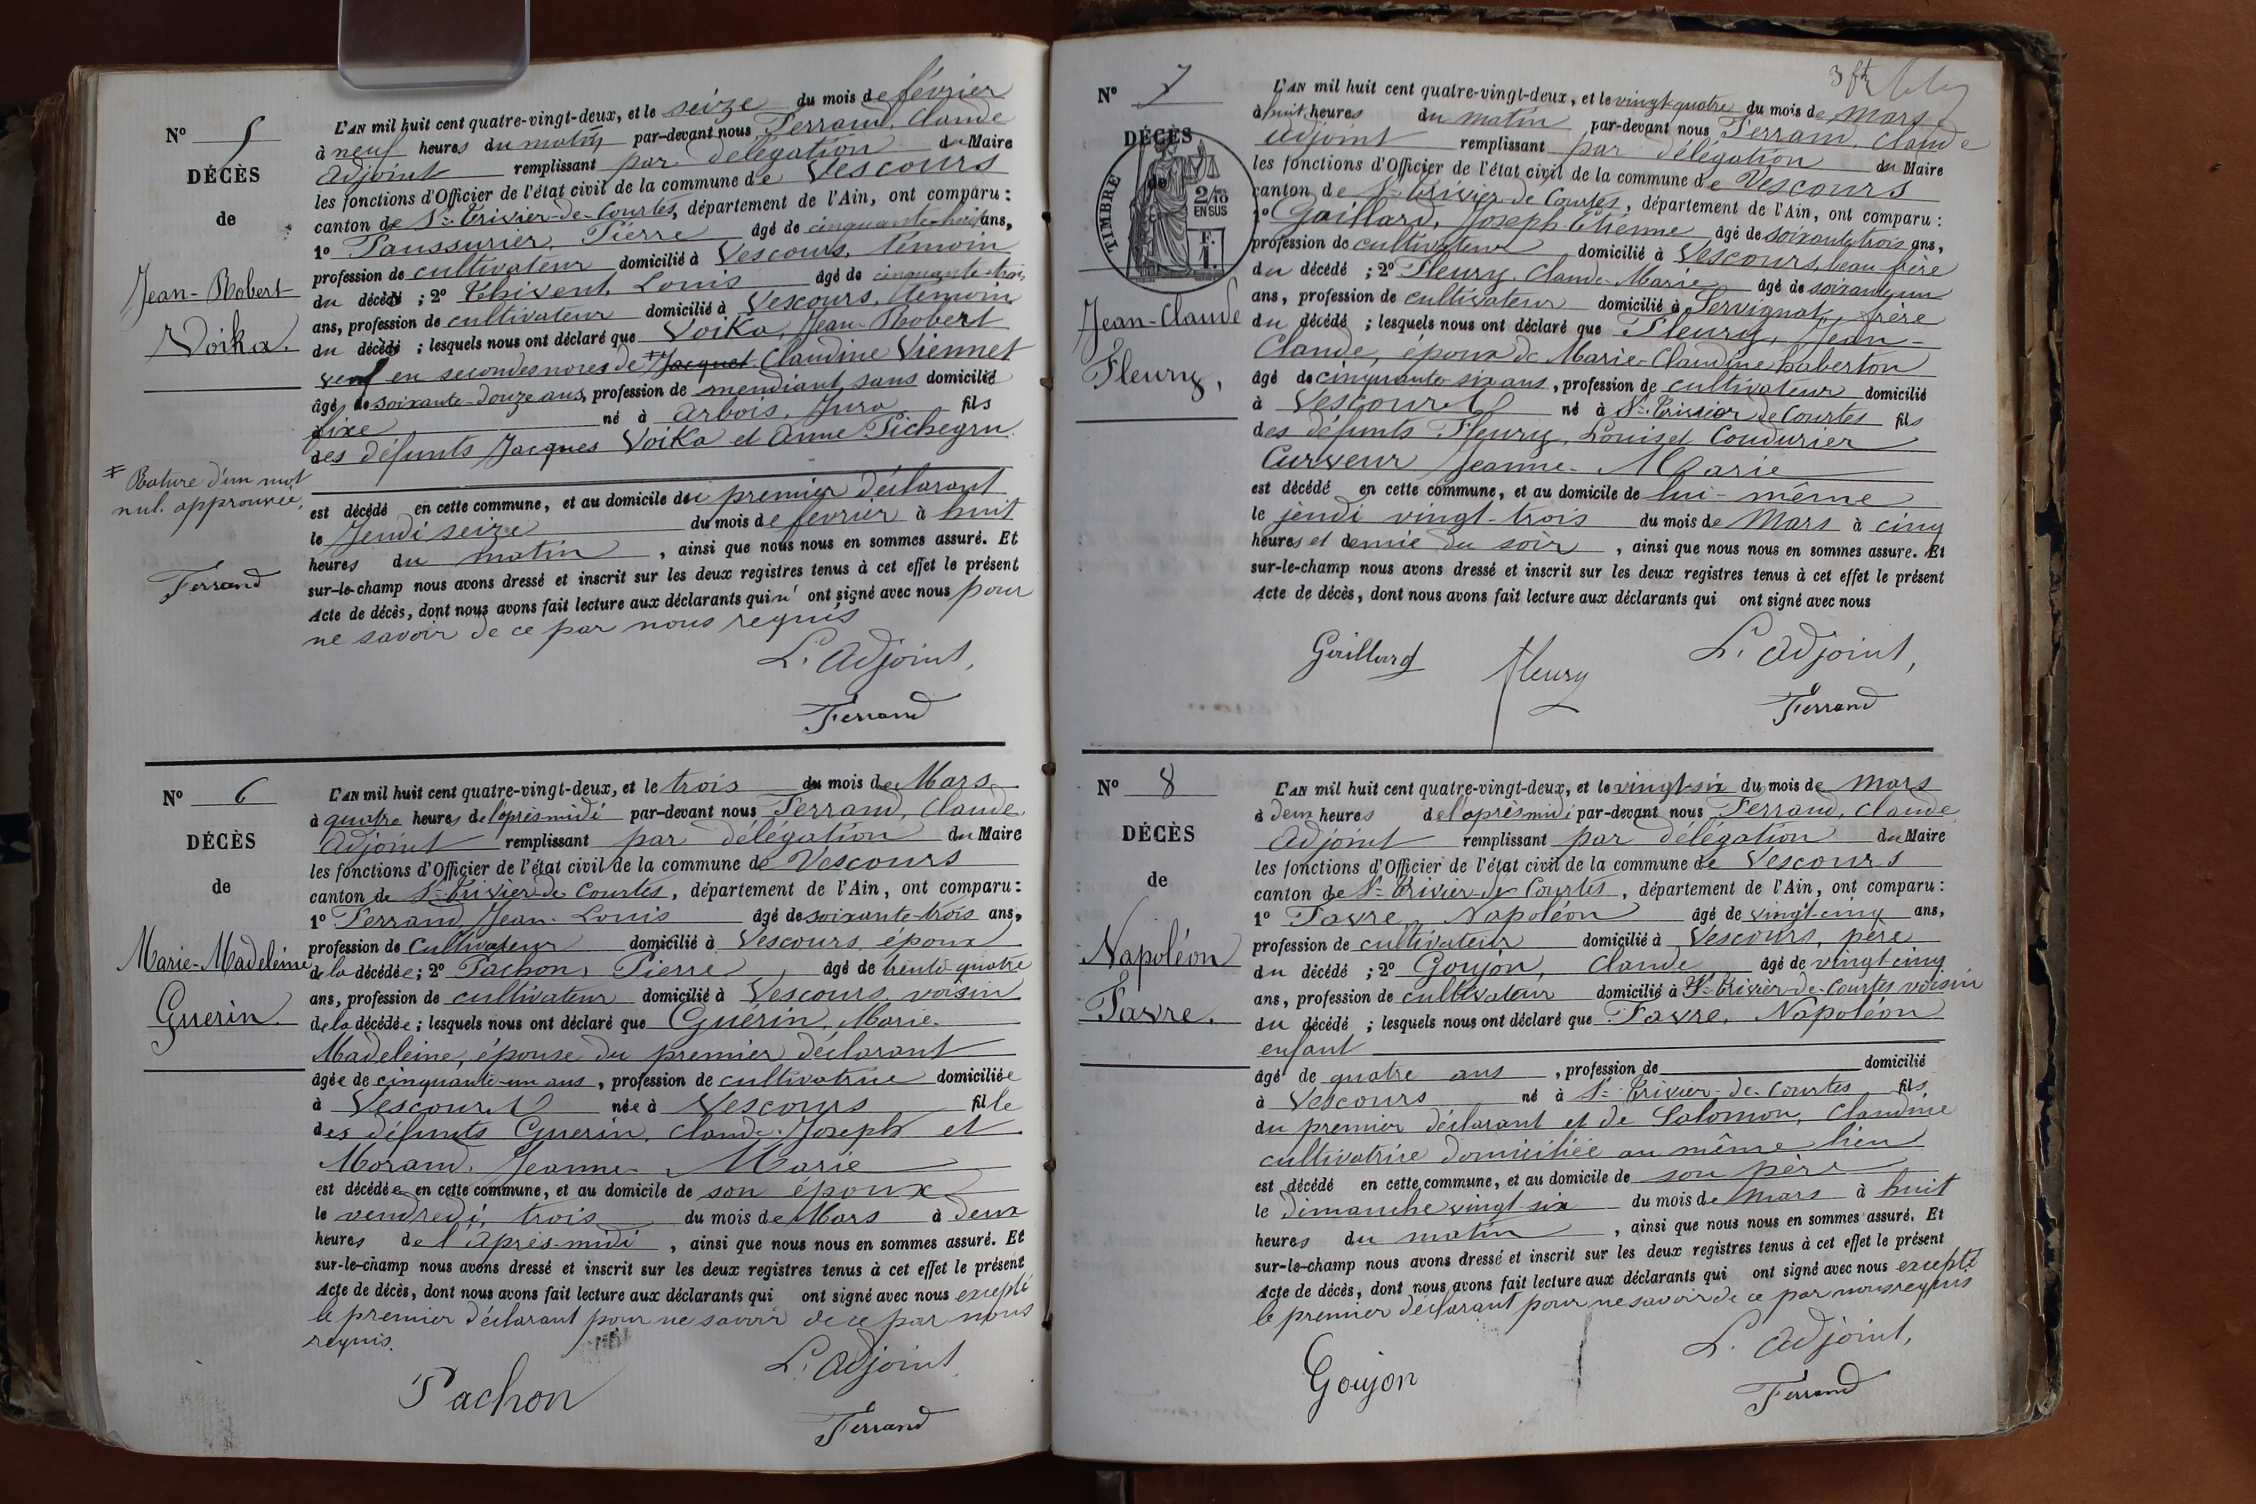 N° 5
DÉCÈS
de
Jean-Robert
Voika.
‡ Rature d'un mot
nul. approuvée.
Ferrand
L'AN mil huit cent quatre-vingt-deux, et le seize du mois de février
à neuf heures du matin par-devant nous Ferrand, Claude
adjoint remplissant par délégation du Maire
les fonctions d'Officier de l'état civil de la commune de Vescours
canton de St-Trivier-de-Courtes, département de l'Ain, ont comparu :
1° Paussurier, Pierre âgé de cinquante-huit ans,
profession de cultivateur domicilié à Vescours, témoin
du décédé ; 2° Thivent, Louis âgé de cinquante-trois
ans, profession de cultivateur domicilié à Vescours, témoin
du décédé ; lesquels nous ont déclaré que Voika, Jean-Robert
veuf en secondes noces de ‡ Jacquet Claudine Viennet
âgé de soixante-douze ans, profession de mendiant, sans domicilié
fixe né à Arbois, Jura fils
des défunts Jacques Voika et Anne Pichegru
est décédé en cette commune, et au domicile du premier déclarant
le Jeudi seize du mois de février à huit
heures du matin, ainsi que nous nous en sommes assuré. Et
sur-le-champ nous avons dressé et inscrit sur les deux registres tenus à cet effet le présent
Acte de décès, dont nous avons fait lecture aux déclarants qui n'ont signé avec nous pour
ne savoir de ce par nous requis
L'adjoint,
Ferrand
N° 6
DÉCÈS
de
Marie-Madeleine
Guerin.
L'AN mil huit cent quatre-vingt-deux, et le trois du mois de Mars
à quatre heures de l'après midi par-devant nous Ferrand, Claude
Adjoint remplissant par délégation du Maire
les fonctions d'Officier de l'état civil de la commune de Vescours
canton de St-Trivier-de-Courtes, département de l'Ain, ont comparu :
1° Ferrand, Jean-Louis âgé de soixante-trois ans,
profession de Cultivateur domicilié à Vescours, époux
de la décédée ; 2° Pachon, Pierre, âgé de trente-quatre
ans, profession de cultivateur domicilié à Vescours, voisin
de la décédée ; lesquels nous ont déclaré que Guerin, Marie-
Madeleine, épouse du premier déclarant
âgée de cinquante-un ans, profession de cultivatrice domiciliée
à Vescours née à Vescours fille
des défunts Guerin, Claude-Joseph et
Morand, Jeanne-Marie
est décédée en cette commune, et au domicile de son époux
le vendredi, trois du mois de Mars à deux
heures de l'après-midi, ainsi que nous nous en sommes assuré. Et
sur-le-champ nous avons dressé et inscrit sur les deux registres tenus à cet effet le présent
Acte de décès, dont nous avons fait lecture aux déclarants qui ont signé avec nous excepté
le premier déclarant pour ne savoir de ce par nous
requis.
Pachon
L'adjoint
Ferrand
N° 7
DÉCÈS
de
TIMBRE
2/10
EN SUS
F.
1.
Jean-Claude
Fleury,
L'AN mil huit cent quatre-vingt-deux, et le vingt-quatre du mois de mars
à huit heures du matin par-devant nous Ferrand, Claude
adjoint remplissant par délégation du Maire
les fonctions d'Officier de l'état civil de la commune de Vescours
canton de St-Trivier-de-Courtes, département de l'Ain, ont comparu :
1° Gaillard, Joseph-Etienne âgé de soixante-trois ans,
profession de cultivateur domicilié à Vescours, beau frère
du décédé ; 2° Fleury, Claude-Marie âgé de soixante-un
ans, profession de cultivateur domicilié à Servignat, frère
du décédé ; lesquels nous ont déclaré que Fleury, Jean-
Claude, époux de Marie-Claudine haberton
âgé de cinquante-six ans, profession de cultivateur domicilié
à Vescours né à St-Trivier de Courtes fils
des défunts Fleury, Louis et Coudurier
Curveur Jeanne-Marie
est décédé en cette commune, et au domicile de lui-même
le jeudi vingt-trois du mois de Mars à cinq
heures et demie du soir, ainsi que nous nous en sommes assuré. Et
sur-le-champ nous avons dressé et inscrit sur les deux registres tenus à cet effet le présent
Acte de décès, dont nous avons fait lecture aux déclarants qui ont signé avec nous
Gaillard
fleury
L'adjoint,
Ferrand
N° 8
DÉCÈS
de
Napoléon
Favre.
L'AN mil huit cent quatre-vingt-deux, et le vingt-six du mois de mars
à deux heures de l'après midi par-devant nous Ferrand, Claude
Adjoint remplissant par délégation du Maire
les fonctions d'Officier de l'état civil de la commune de Vescours
canton de St-Trivier-de-Courtes, département de l'Ain, ont comparu :
1° Favre, Napoléon âgé de vingt-cinq ans,
profession de cultivateur domicilié à Vescours, père
du décédé ; 2° Goujon, Claude âgé de vingt cinq
ans, profession de cultivateur domicilié à St-Trivier-de-Courtes voisin
du décédé ; lesquels nous ont déclaré que Favre, Napoléon
enfant
âgé de quatre ans, profession de domicilié
à Vescours né à St-Trivier-de-Courtes fils
du premier déclarant et de Salomon, Claudine
cultivatrice domiciliée au même lieu
est décédé en cette commune, et au domicile de son père
le dimanche vingt-six du mois de mars à huit
heures du matin, ainsi que nous nous en sommes assuré. Et
sur-le-champ nous avons dressé et inscrit sur les deux registres tenus à cet effet le présent
Acte de décès, dont nous avons fait lecture aux déclarants qui ont signé avec nous excepté
le premier déclarant pour ne savoir de ce par nous requis
Goujon
L'adjoint,
Ferrand